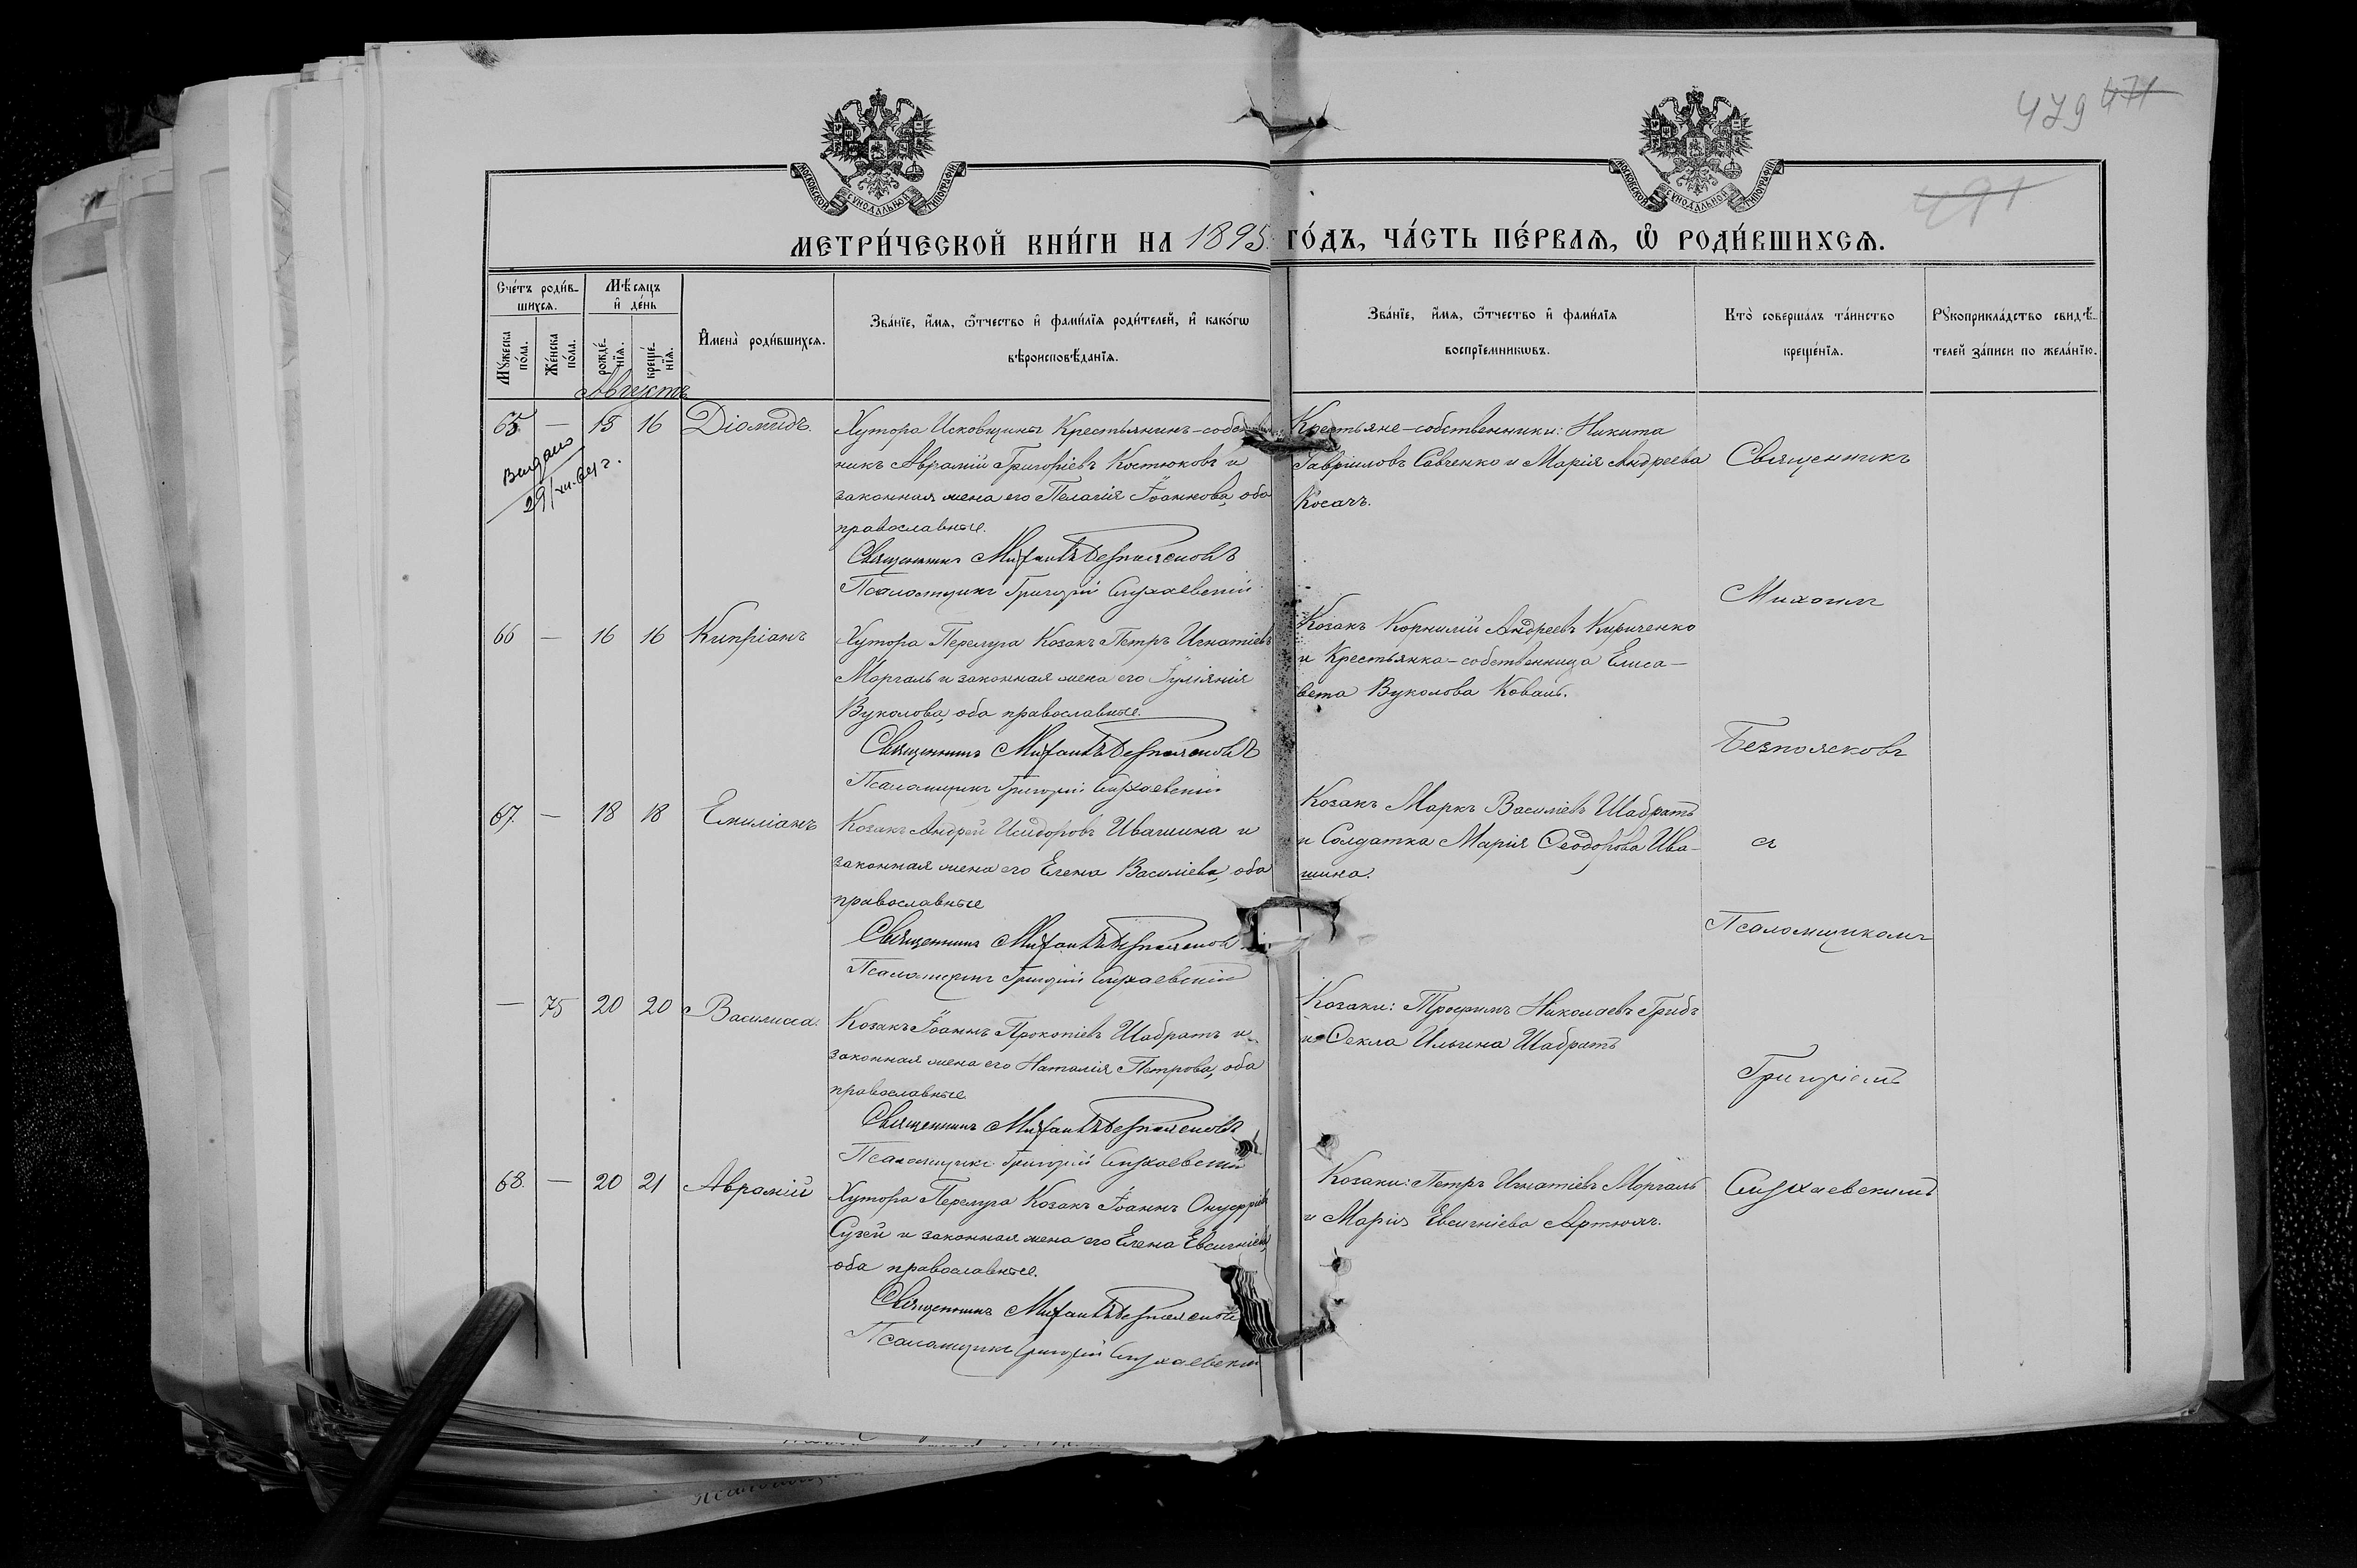 479 471
491
МОСКОВСКОЙ СѴНОДАЛЬНОЙ ТИПОГРАФІИ
МОСКОВСКОЙ СѴНОДАЛЬНОЙ ТИПОГРАФІИ
МЕТРИ́ЧЕСКОЙ КНИ́ГИ НА 1895 ГО́ДЪ, ЧА́СТЬ ПЕ́РВАѦ, Ѡ҆ РОДИ́ВШИХСѦ.
Сче́тъ роди́в-
шихсѧ.
Мꙋ́жеска по́ла.
Же́нска по́ла.
Мѣ́сѧцъ
и҆ де́нь
рожде́-нїѧ.
креще́-нїѧ.
И҆мена̀ роди́вшихсѧ.
Зва́нїе, и҆́мѧ, ѻ҆́тчество и҆ фами́лїѧ роди́телей, и҆ како́гѡ
вѣроисповѣ́данїѧ.
Зва́нїе, и҆́мѧ, ѻ҆́тчество и҆ фами́лїѧ
воспрїе́мникѡвъ.
Кто̀ соверша́лъ та́инство
креще́нїѧ.
Рꙋкоприкла́дство свидѣ́-
телей за́писи по жела́нїю.
Августъ
65 — 15 16 Діомидъ.
Выдано
29/XII.64 г.
Хутора Исковщины Крестьянинъ-собствен
никъ Аврамій Григоріевъ Костюковъ и
законная жена его Пелагія Іоаннова, оба
православные.
Священникъ Михаилъ Безпоясковъ
Псаломщикъ Григорій Слухаевскій
Крестьяне-собственники: Никита
Гавріиловъ Савченко и Марія Андреева
Косачъ.
Священникъ
Михаилъ
66 — 16 16 Кипріанъ
Хутора Перелуга Козакъ Петръ Игнатіевъ
Моргаль и законная жена его Іуліянія
Вуколова, оба православные.
Священникъ Михаилъ Безпоясковъ
Псаломщикъ Григорій Слухаевскій
Козакъ Корнилій Андреевъ Кириченко
и Крестьянка-собственница Елиса-
вета Вуколова Коваль.
Безпоясковъ
67. — 18 18 Емиліанъ
Козакъ Андрей Исидоровъ Ивашина и
законная жена его Елена Василіева, оба
православные
Священникъ Михаилъ Безпоясковъ
Псаломщикъ Григорій Слухаевскій
Козакъ Маркъ Василіевъ Шабратъ
и Солдатка Марія Ѳеодорова Ива-
шина.
съ
Псаломщикомъ
— 75 20 20 Василисса.
Козакъ Іоаннъ Прокопіевъ Шабратъ и
законная жена его Наталія Петрова, оба
православные
Священникъ Михаилъ Безпоясковъ
Псаломщикъ Григорій Слухаевскій
Козаки: Трофимъ Николаевъ Грибъ
и Ѳекла Ильина Шабратъ
Григоріемъ
68. — 20 21 Аврамій
Хутора Перелуга Козакъ Іоаннъ Онуфріевъ
Сузей и законная жена его Елена Евсигніева,
оба православные.
Священникъ Михаилъ Безпоясковъ
Псаломщикъ Григорій Слухаевскій
Козаки: Петръ Игнатіевъ Моргаль
и Марія Евсигніева Артюхъ.
Слухаевскимъ